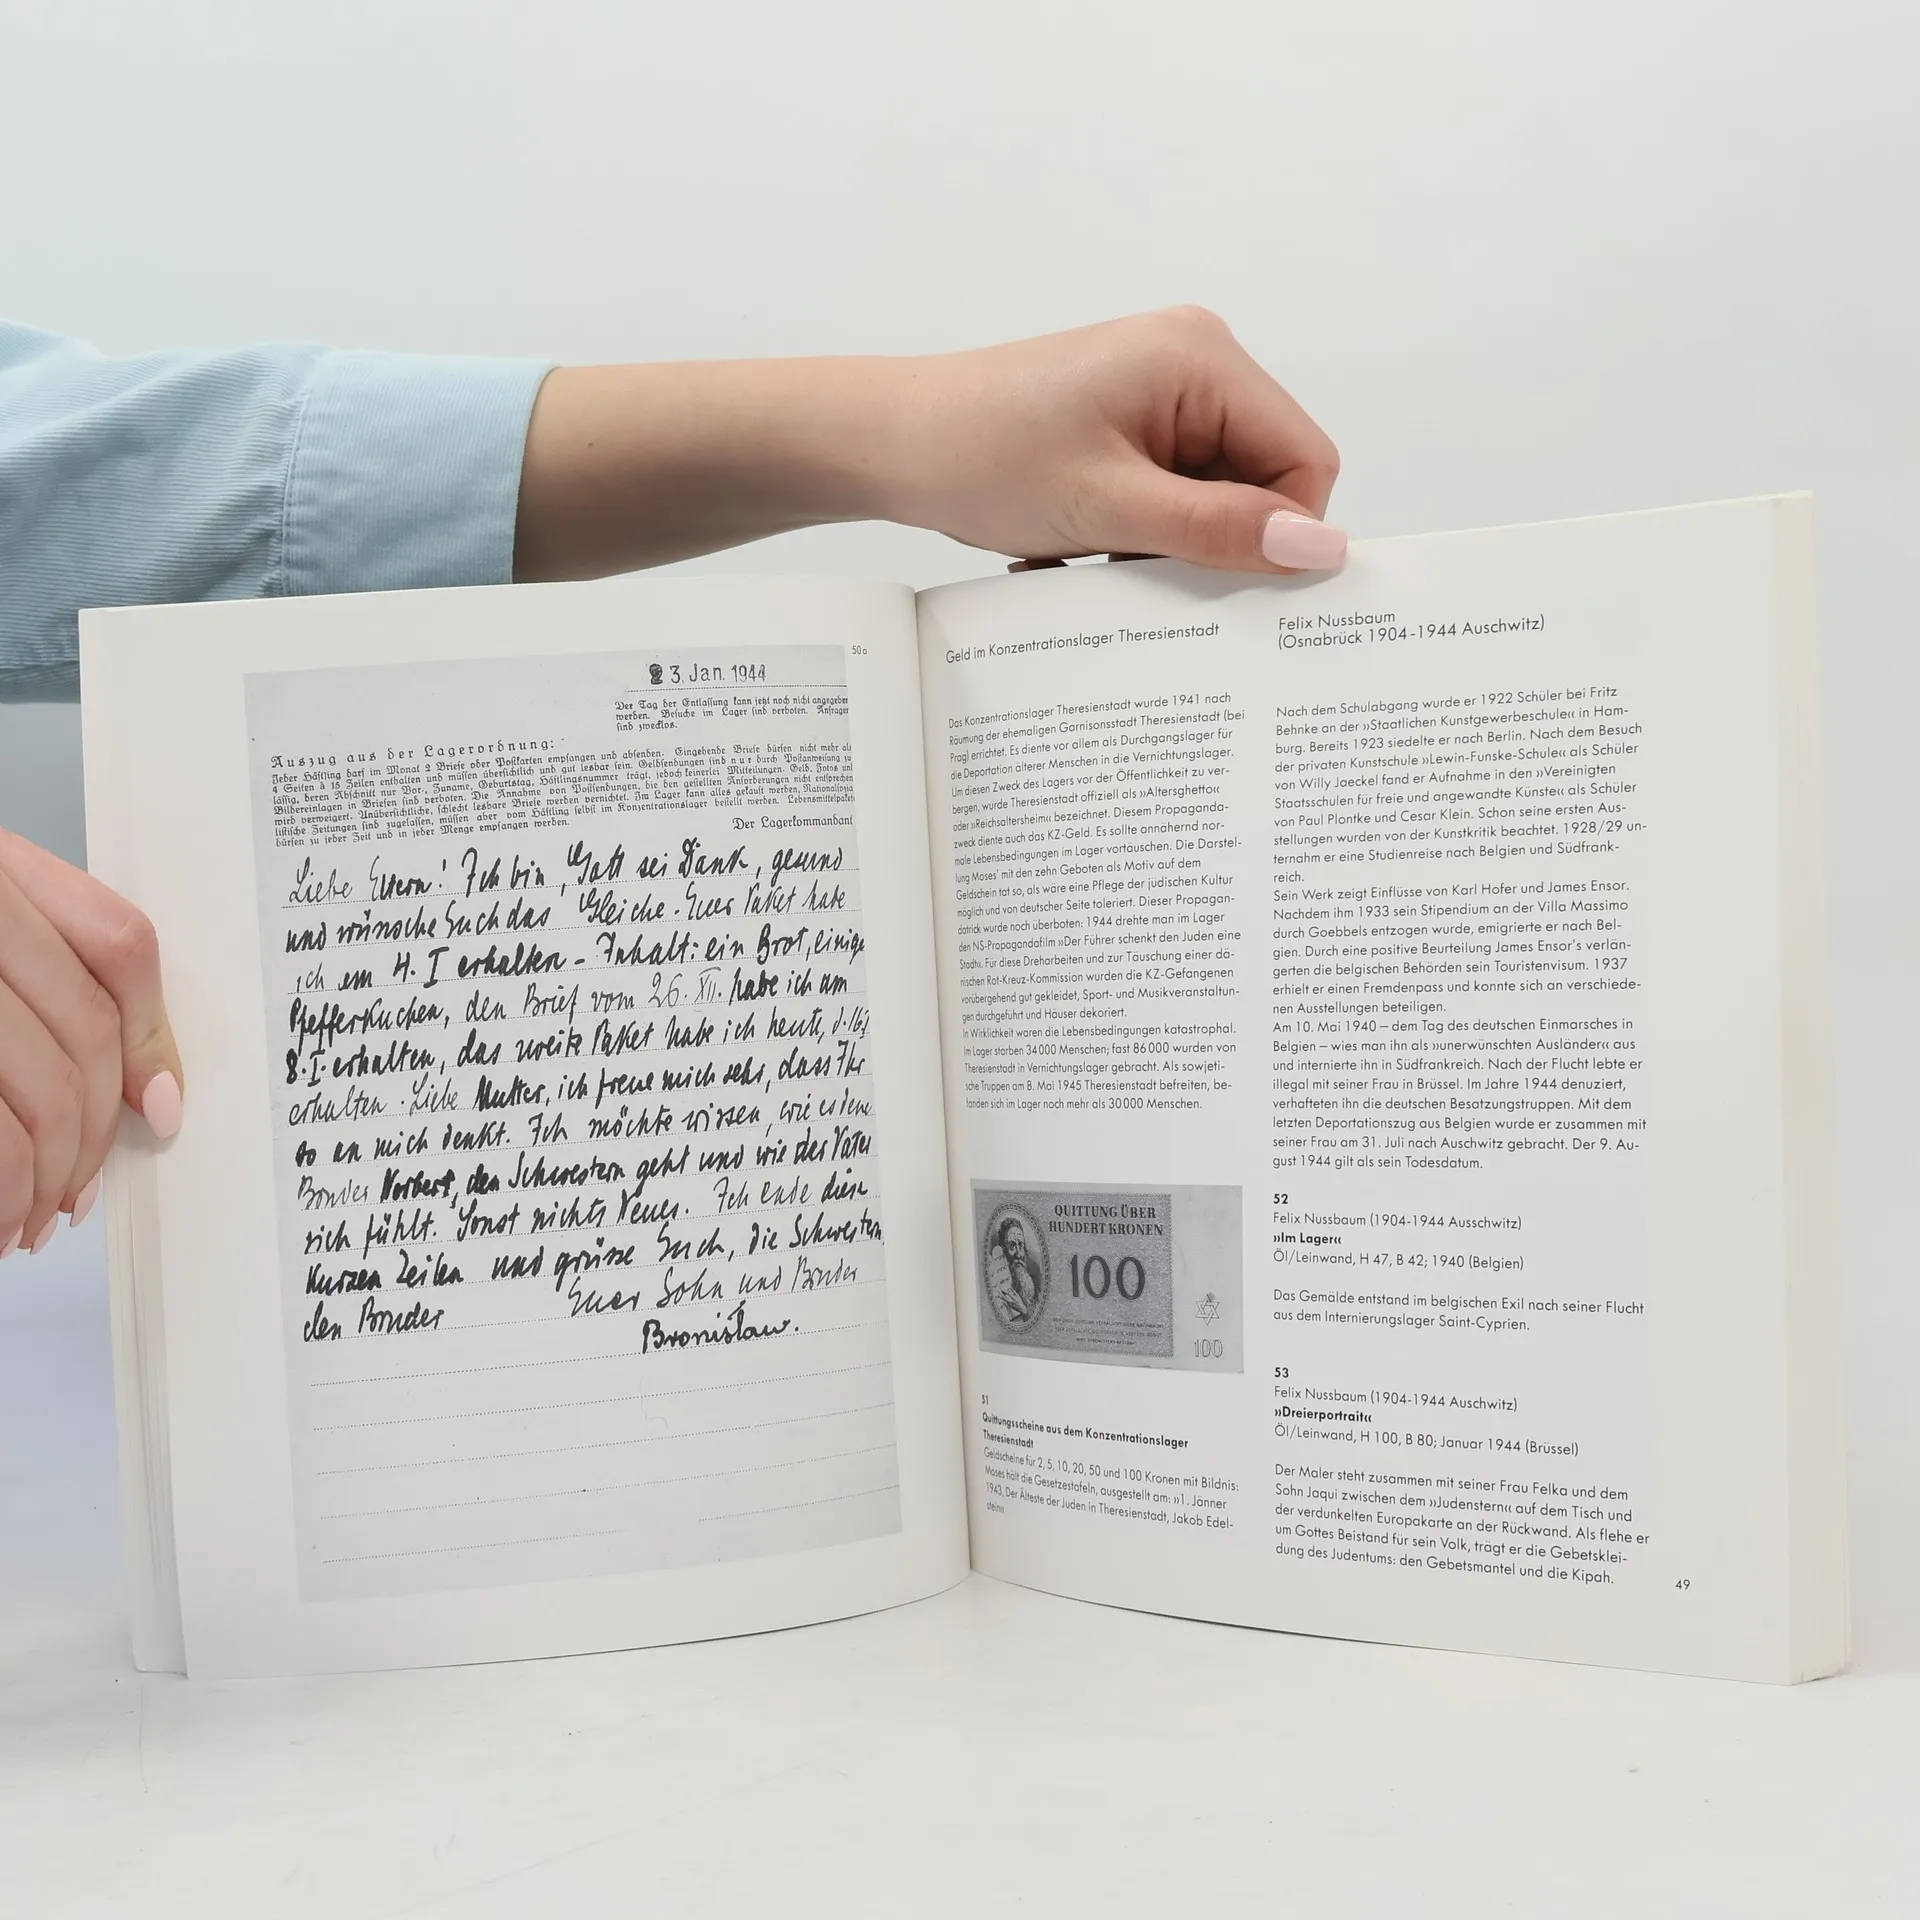 50a
23. Jan. 1944
Der Tag der Entlassung kann jetzt noch nicht angegeben
werden. Besuche im Lager sind verboten. Anfragen
sind zwecklos.
Auszug aus der Lagerordnung:
Jeder Häftling darf im Monat 2 Briefe oder Postkarten empfangen und absenden. Eingehende Briefe dürfen nicht mehr als
4 Seiten à 15 Zeilen enthalten und müssen übersichtlich und gut lesbar sein. Geldsendungen sind nur durch Postanweisung zu-
lässig, deren Abschnitt nur Vor-, Zuname, Geburtstag, Häftlingsnummer trägt, jedoch keinerlei Mitteilungen. Geld, Fotos und
Bildereinlagen in Briefen sind verboten. Die Annahme von Postsendungen, die den gestellten Anforderungen nicht entsprechen
wird verweigert. Unübersichtliche, schlecht lesbare Briefe werden vernichtet. Im Lager kann alles gekauft werden, Nationalsozia
listische Zeitungen sind zugelassen, müssen aber vom Häftling selbst im Konzentrationslager bestellt werden. Lebensmittelpakete
dürfen zu jeder Zeit und in jeder Menge empfangen werden.
Der Lagerkommandant
Liebe Eltern! Ich bin, Gott sei Dank, gesund
und wünsche Euch das Gleiche. Euer Paket habe
ich am 4. I erhalten - Inhalt: ein Brot, einige
Pfefferkuchen, den Brief vom 26. XII. habe ich am
8. I. erhalten, das zweite Paket habe ich heute, d. 16.
erhalten. Liebe Mutter, ich freue mich sehr, dass Ihr
so an mich denkt. Ich möchte wissen, wie es dem
Bruder Norbert, den Schwestern geht und wie der Vater
sich fühlt. Sonst nichts Neues. Ich ende diese
kurzen Zeilen und grüsse Euch, die Schwestern
den Bruder Euer Sohn und Bruder
Bronisław.
Geld im Konzentrationslager Theresienstadt
Das Konzentrationslager Theresienstadt wurde 1941 nach
Räumung der ehemaligen Garnisonsstadt Theresienstadt (bei
Prag) errichtet. Es diente vor allem als Durchgangslager für
die Deportation älterer Menschen in die Vernichtungslager.
Um diesen Zweck des Lagers vor der Öffentlichkeit zu ver-
bergen, wurde Theresienstadt offiziell als »Altersghetto«
oder »Reichsaltersheim« bezeichnet. Diesem Propaganda-
zweck diente auch das KZ-Geld. Es sollte annähernd nor-
male Lebensbedingungen im Lager vortäuschen. Die Darstel-
lung Moses' mit den zehn Geboten als Motiv auf dem
Geldschein tat so, als wäre eine Pflege der jüdischen Kultur
möglich und von deutscher Seite toleriert. Dieser Propagan-
datrick wurde noch überboten: 1944 drehte man im Lager
den NS-Propagandafilm »Der Führer schenkt den Juden eine
Stadt«. Für diese Dreharbeiten und zur Täuschung einer dä-
nischen Rot-Kreuz-Kommission wurden die KZ-Gefangenen
vorübergehend gut gekleidet, Sport- und Musikveranstaltun-
gen durchgeführt und Häuser dekoriert.
In Wirklichkeit waren die Lebensbedingungen katastrophal.
Im Lager starben 34 000 Menschen; fast 86 000 wurden von
Theresienstadt in Vernichtungslager gebracht. Als sowjeti-
sche Truppen am 8. Mai 1945 Theresienstadt befreiten, be-
fanden sich im Lager noch mehr als 30 000 Menschen.
QUITTUNG ÜBER
HUNDERT KRONEN
100
100
51
Quittungsscheine aus dem Konzentrationslager
Theresienstadt
Geldscheine für 2, 5, 10, 20, 50 und 100 Kronen mit Bildnis:
Moses hält die Gesetzestafeln, ausgestellt am: »1. Jänner
1943, Der Älteste der Juden in Theresienstadt, Jakob Edel-
stein«
Felix Nussbaum
(Osnabrück 1904-1944 Auschwitz)
Nach dem Schulabgang wurde er 1922 Schüler bei Fritz
Behnke an der »Staatlichen Kunstgewerbeschule« in Ham-
burg. Bereits 1923 siedelte er nach Berlin. Nach dem Besuch
der privaten Kunstschule »Lewin-Funske-Schule« als Schüler
von Willy Jaeckel fand er Aufnahme in den »Vereinigten
Staatsschulen für freie und angewandte Künste« als Schüler
von Paul Plontke und Cesar Klein. Schon seine ersten Aus-
stellungen wurden von der Kunstkritik beachtet. 1928/29 un-
ternahm er eine Studienreise nach Belgien und Südfrank-
reich.
Sein Werk zeigt Einflüsse von Karl Hofer und James Ensor.
Nachdem ihm 1933 sein Stipendium an der Villa Massimo
durch Goebbels entzogen wurde, emigrierte er nach Bel-
gien. Durch eine positive Beurteilung James Ensor's verlän-
gerten die belgischen Behörden sein Touristenvisum. 1937
erhielt er einen Fremdenpass und konnte sich an verschiede-
nen Ausstellungen beteiligen.
Am 10. Mai 1940 – dem Tag des deutschen Einmarsches in
Belgien – wies man ihn als »unerwünschten Ausländer« aus
und internierte ihn in Südfrankreich. Nach der Flucht lebte er
illegal mit seiner Frau in Brüssel. Im Jahre 1944 denuziert,
verhafteten ihn die deutschen Besatzungstruppen. Mit dem
letzten Deportationszug aus Belgien wurde er zusammen mit
seiner Frau am 31. Juli nach Auschwitz gebracht. Der 9. Au-
gust 1944 gilt als sein Todesdatum.
52
Felix Nussbaum (1904-1944 Ausschwitz)
»Im Lager«
Öl/Leinwand, H 47, B 42; 1940 (Belgien)
Das Gemälde entstand im belgischen Exil nach seiner Flucht
aus dem Internierungslager Saint-Cyprien.
53
Felix Nussbaum (1904-1944 Auschwitz)
»Dreierportrait«
Öl/Leinwand, H 100, B 80; Januar 1944 (Brüssel)
Der Maler steht zusammen mit seiner Frau Felka und dem
Sohn Jaqui zwischen dem »Judenstern« auf dem Tisch und
der verdunkelten Europakarte an der Rückwand. Als flehe er
um Gottes Beistand für sein Volk, trägt er die Gebetsklei-
dung des Judentums: den Gebetsmantel und die Kipah.
49